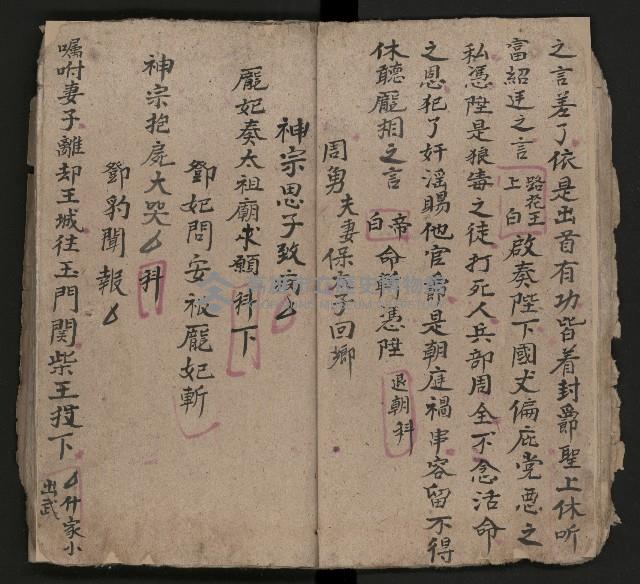 之言差了依是出首有功皆着封爵聖上休听
富紹廷之言 路花王上白 啟奏陛下國丈偏庇党惡之
私憑陞是狼毒之徒打死人兵部周全不念活命
之恩犯了奸淫賜他官爵是朝庭禍事容留不得
休聽龐相之言 帝白 命 憑陞 退朝科
周勇夫妻保 子回鄉
神宗思子致病
龐妃奏太祖廟求願科下
鄧妃問安被龐妃斬
神宗抱屍大哭 科
鄧豹聞報
囑咐妻子離却王城往玉門関柴王投下 什家小出武